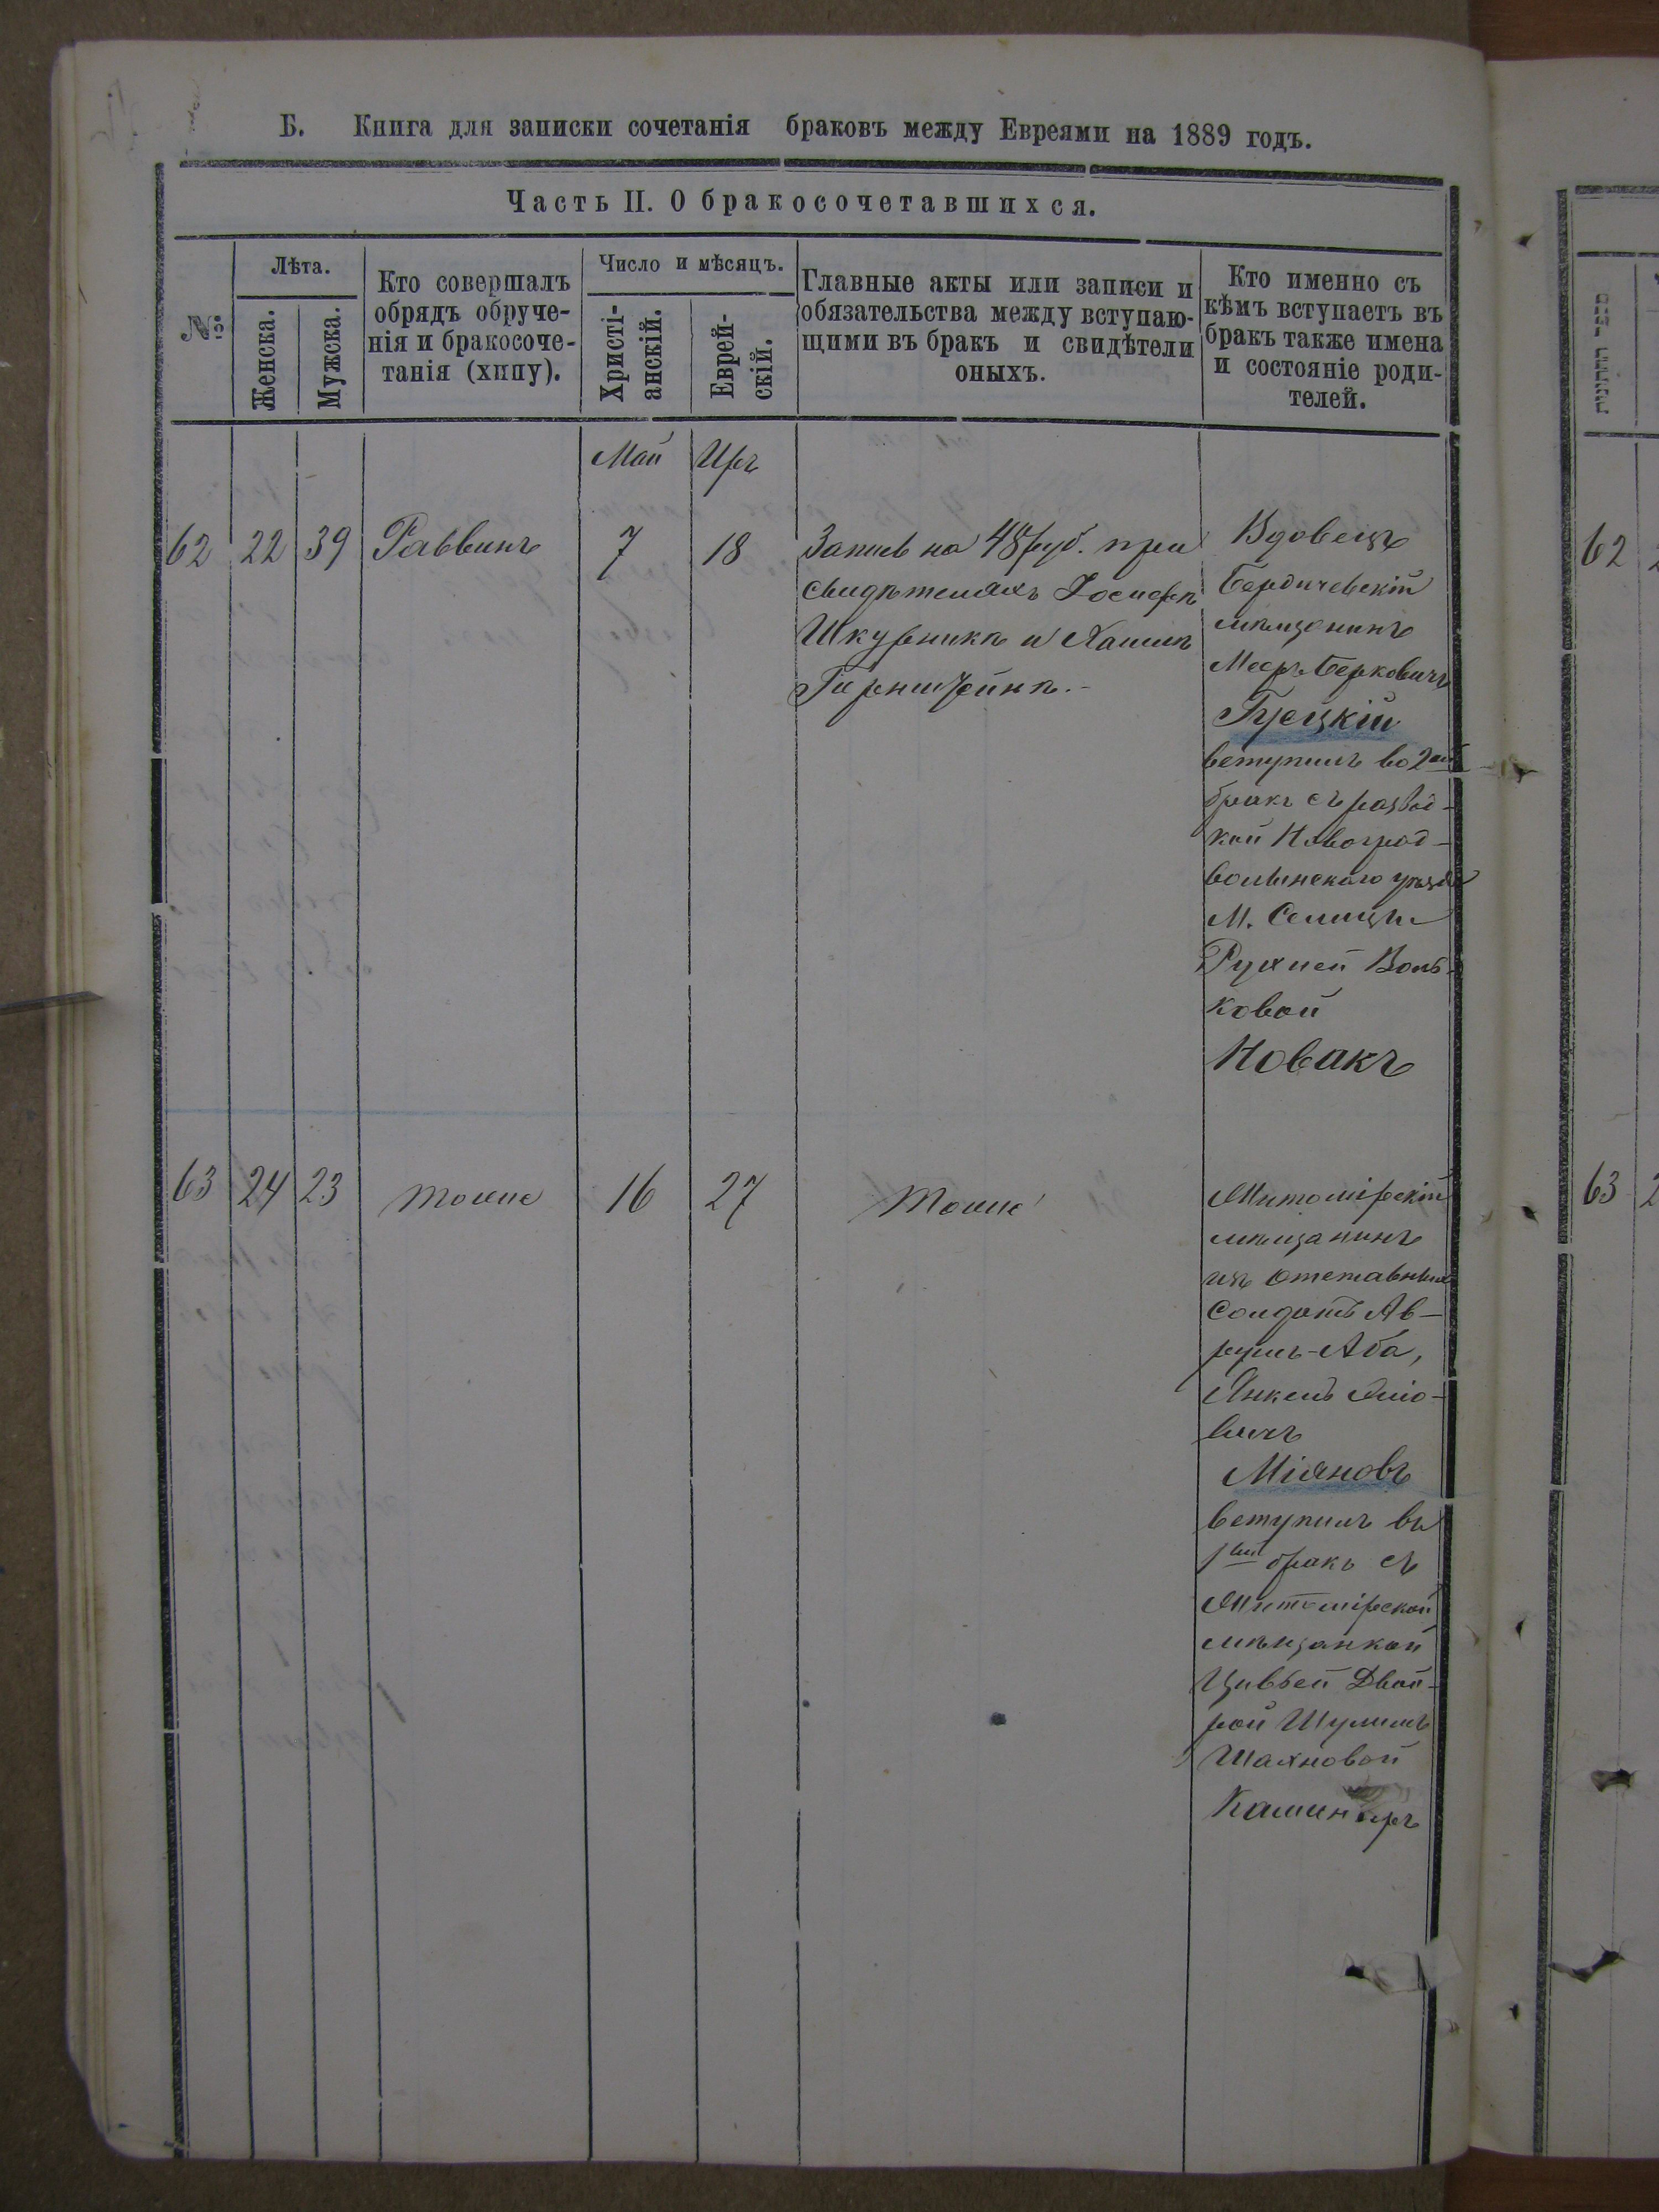 Б. Книга для записки сочетанія браковъ между Евреями на 1889 годъ.
Часть II. О бракосочетавшихся.
№
Лѣта.
Женска.
Мужска.
Кто совершалъ
обрядъ обруче-
нія и бракосоче-
танія (хипу).
Число и мѣсяцъ.
Христі-
анскій.
Еврей-
скій.
Главные акты или записи и
обязательства между вступаю-
щими въ бракъ и свидѣтели
оныхъ.
Кто именно съ
кѣмъ вступаетъ въ
бракъ также имена
и состояніе роди-
телей.
Май Иръ
62 22 39 Раввинъ 7 18
Запись на 48 руб. при
свидѣтеляхъ Іосифѣ
Шкурникѣ и Хаимѣ
Вдовецъ
Бердичевскій
мѣщанинъ
Меоръ Берковичъ
Грецкій
вступилъ во 2ой
бракъ съ развод-
кой Новоград-
волынскаго уѣзда
М.
Рухлей Воль-
ковой
Новакъ
63 24 23 тоже 16 27 тоже
Житомірскій
мѣщанинъ
изъ отставныхъ
Солдатъ Ав-
румъ-Аба,
Янкель
вичъ
Міяновъ
вступилъ въ
1ый бракъ съ
Житомірской
мѣщанкой
Цивьей Двой-
рой Шулимъ
Шахновой
Каминеръ
מספר החתונות
62
63